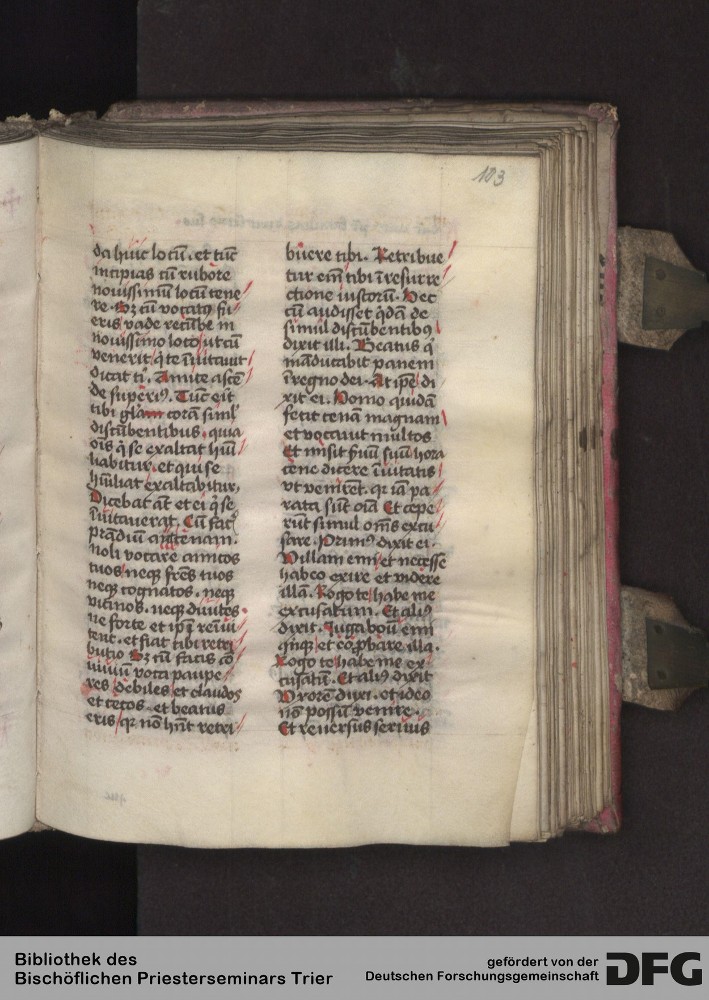 103
da huic locū. et tūc
incipias cū rubore
novissimū locū tene
re. Sz cū vocatꝰ fu
eris vade recūbe in
novissimo loco ut cū
venerit q̇ te īvitavit
dicat t̄. Amice ascē
de superiꝰ. Tūc eīt
tibi glā corā siml̄
discūbentibus. quia
oīs q̇ se exaltat hūi
liabitur. et qui se
hūiliat exaltabitur.
Dicebat āt et ei q̇ se
īvitaverat. Cū facꝭ
prādiū aut cenam.
noli vocare amicos
tuos neqꝫ fr̄es tuos
neqꝫ cognatos. neqꝫ
vicinos. neqꝫ divites.
ne forte et ip̄i reīvi
tent. et fiat tibi retri
butio Sz cū facis cō
viviū voca paupe
res debiles et claudos
et cecos. et beatus
eris qr nō hn̄t retri
buere tibi. Retribue
tur eīn tibi ī resurre
ctione iustorū. Hec
cū audisset q̇dā de
simul discūbentibus
dixit illi. Beatus q̇
māducabit panem
ī regno dei. At ip̄e di
xit ei. Homo quidā
fecit cenā magnam
et vocavit multos
Et misit s̄vū suū hora
cene dicere īvitatis
vt venirēt. qr iā pa
rata sūt oīa Et cepe
rūt simul om̄s excu
sare. Primꝰ dixit ei.
Villam emi et necesse
habeo exire et videre
illā. Rogo te habe me
excusatum. Et aliꝰ
dixit. Iuga boū emi
q̇nqꝫ et eo ꝓbare illa.
Rogo te habe me ex
cusatū. Et aliꝰ dixit
Vxorē duxi. et ideo
nō possū venire.
Et reversus servus
Bibliothek des
Bischöflichen Priesterseminars Trier
gefördert von der
Deutschen Forschungsgemeinschaft
DFG